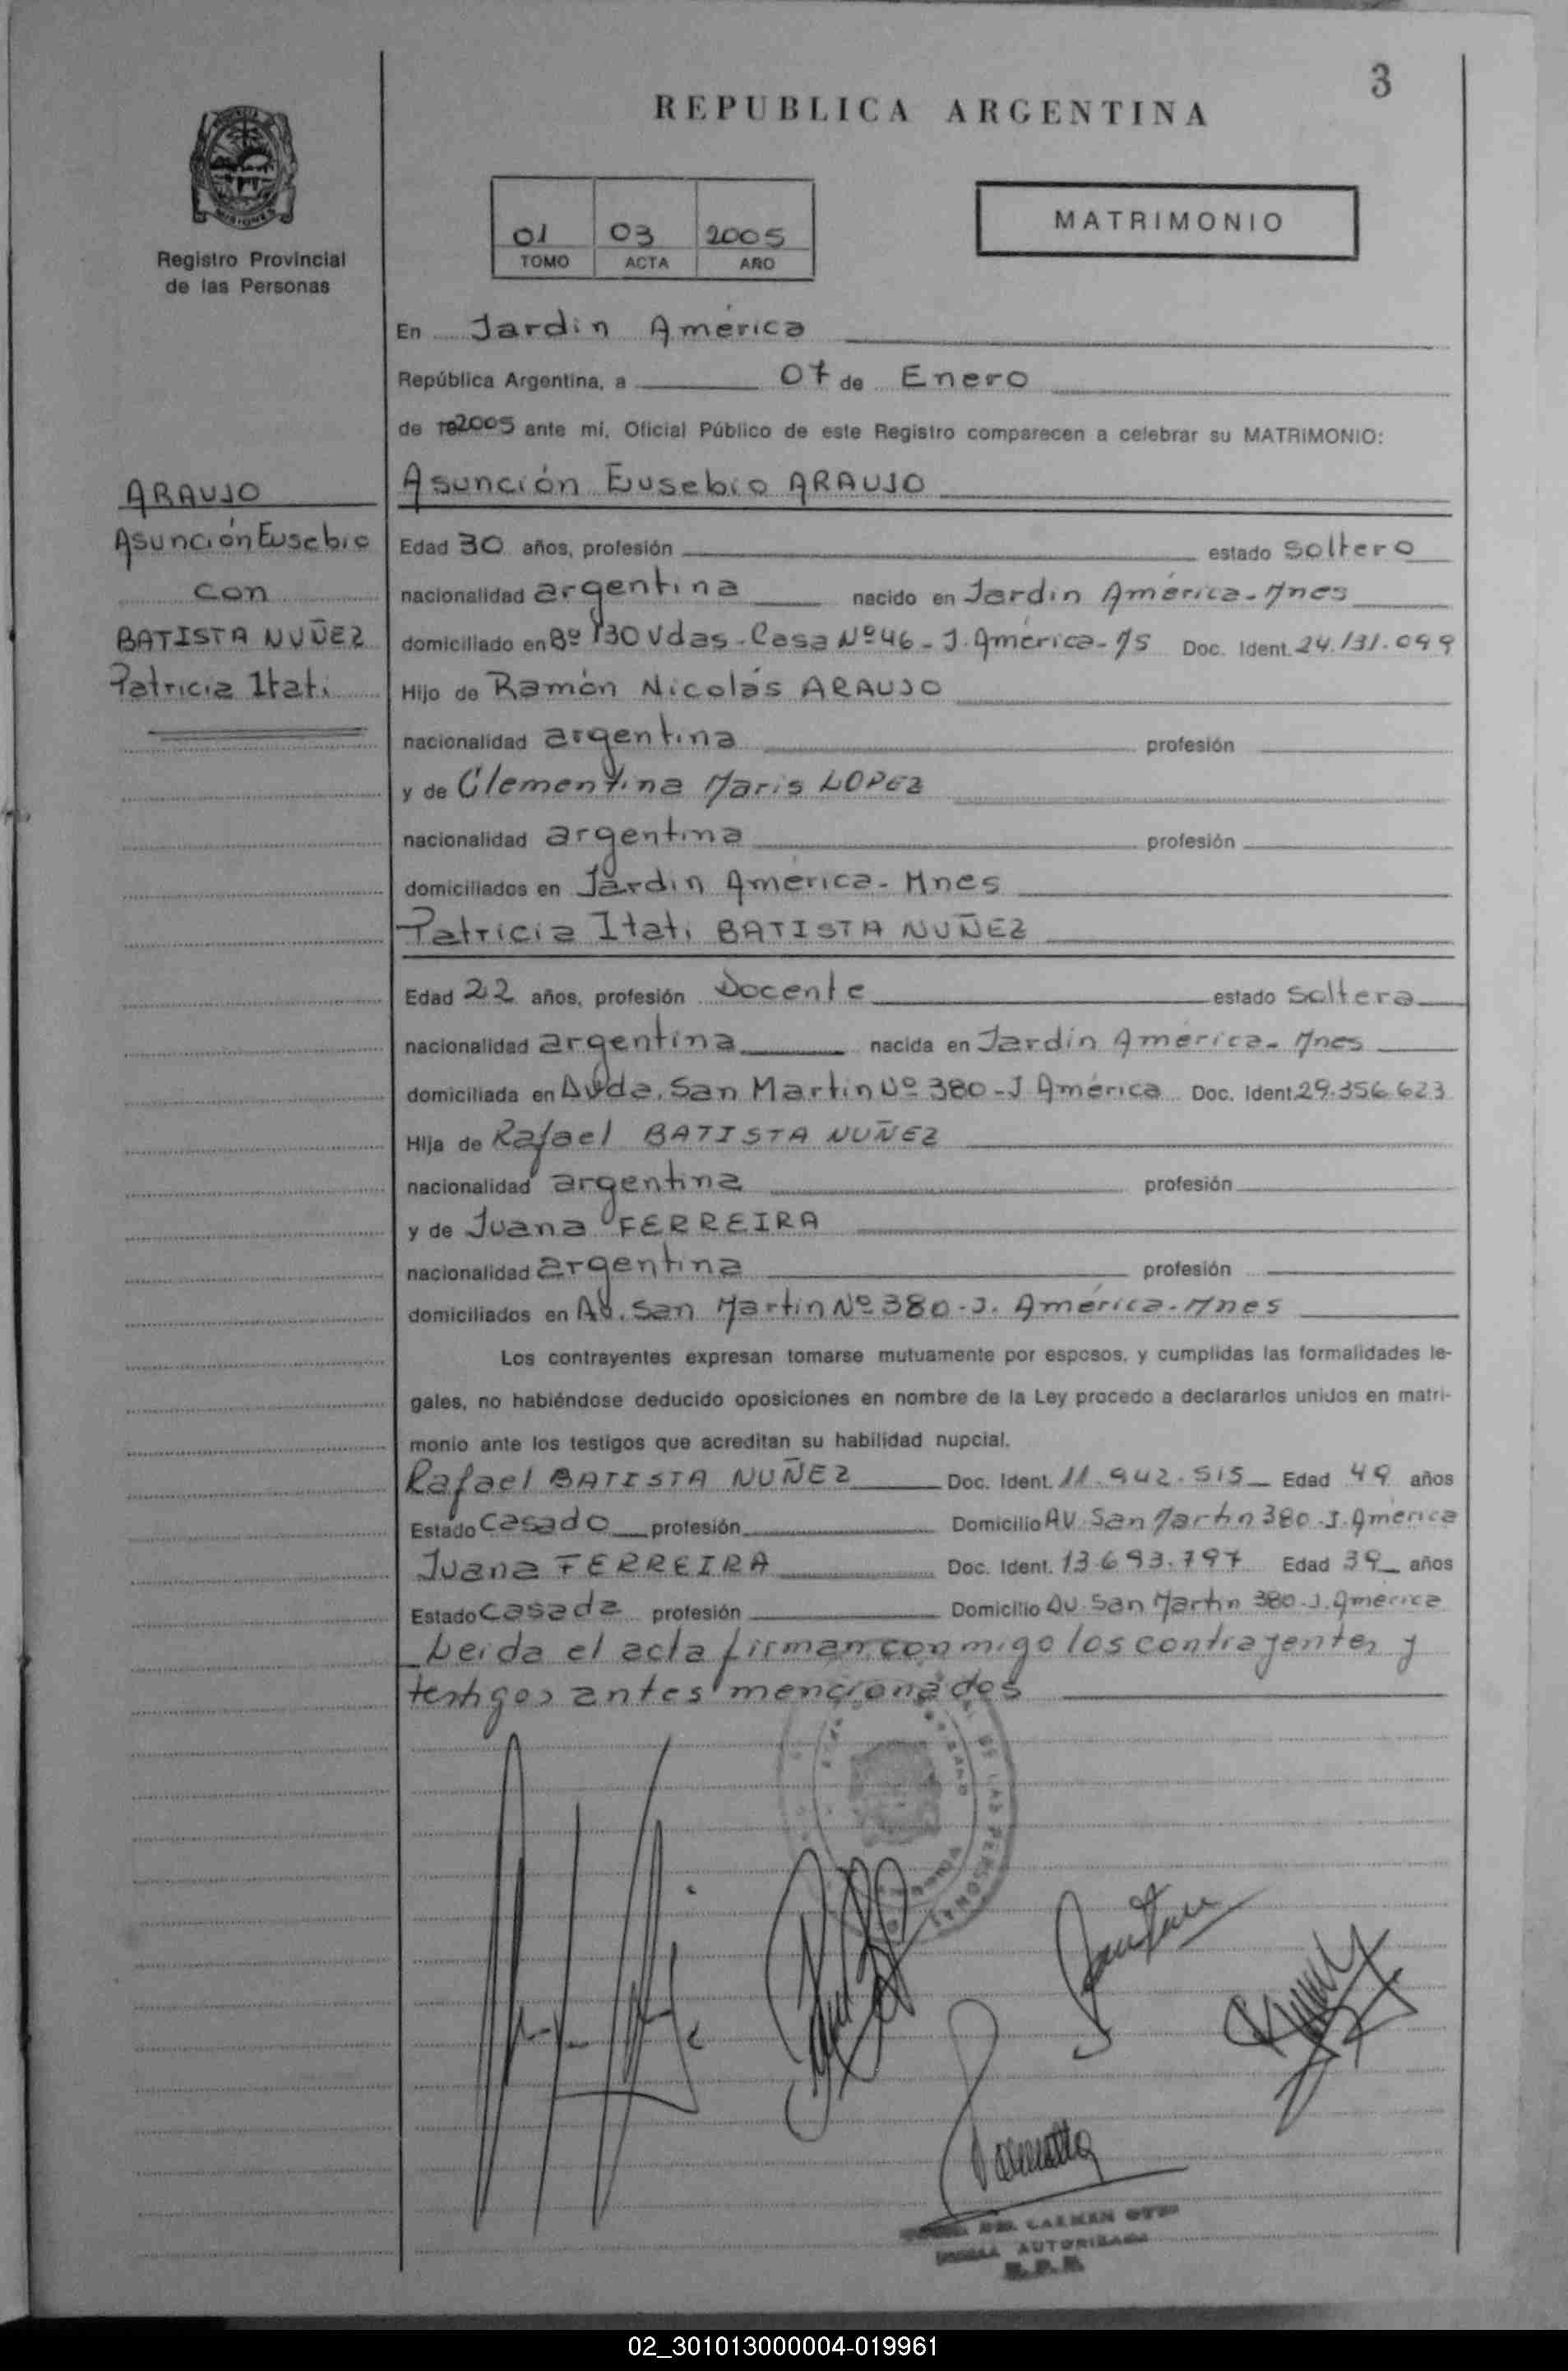 3
REPUBLICA ARGENTINA
MISIONES
Registro Provincial
de las Personas
01 03 2005
TOMO ACTA AÑO
MATRIMONIO
En Jardin América
República Argentina, a 07 de Enero
de 2005 ante mí, Oficial Público de este Registro comparecen a celebrar su MATRIMONIO:
ARAUJO
Asunción Eusebio
con
BATISTA NUÑEZ
Patricia Itati
Asunción Eusebio ARAUJO
Edad 30 años, profesión estado soltero
nacionalidad argentina nacido en Jardin América-Mnes
domiciliado en Bº 130 Vdas-Casa Nº46-J.América-Ms Doc. Ident. 24.131.099
Hijo de Ramón Nicolás ARAUJO
nacionalidad argentina profesión
y de Clementina Maris LOPEZ
nacionalidad argentina profesión
domiciliados en Jardin América-Mnes
Patricia Itati BATISTA NUÑEZ
Edad 22 años, profesión Docente estado soltera
nacionalidad argentina nacida en Jardin América-Mnes
domiciliada en Avda. San Martin Nº 380-J América Doc. Ident. 29.356.623
Hija de Rafael BATISTA NUÑEZ
nacionalidad argentina profesión
y de Juana FERREIRA
nacionalidad argentina profesión
domiciliados en Av. San Martin Nº 380-J. América-Mnes
Los contrayentes expresan tomarse mutuamente por esposos, y cumplidas las formalidades le-
gales, no habiéndose deducido oposiciones en nombre de la Ley procedo a declararlos unidos en matri-
monio ante los testigos que acreditan su habilidad nupcial.
Rafael BATISTA NUÑEZ Doc. Ident. 11.942.515 Edad 49 años
Estado casado profesión Domicilio AV San Martin 380-J.América
Juana FERREIRA Doc. Ident. 13.693.797 Edad 39 años
Estado casada profesión Domicilio AV San Martin 380-J.América
Leida el acta firman conmigo los contrayentes y
testigos antes mencionados
DE LAS PERSONAS
DEL CARMEN
AUTORIZADA
02_301013000004-019961